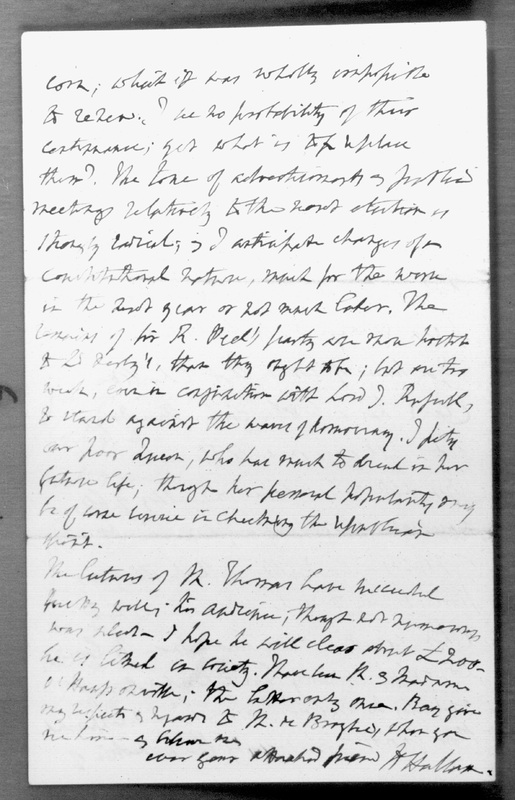 corn; which it was wholly impossible
to renew. I see no probability of their
continuance; yet what is to replace
them? The tone of advertisements & public
meetings relatively to the next election is
strongly radical; & I anticipate changes of a
constitutional nature, much for the worse
in the next year or not much later. The
remains of Sir R. Peel's party are more hostile
to Ld Derby's, than they ought to be; but are too
weak, even in conjunction with Lord J. Russell,
to stand against the waves of democracy. I pity
our poor Queen, who has much to dread in her
future life; though her personal popularity may
be of some service in checking the republican
spirit.
The lectures of M. Thomas have succeeded
pretty well; his audience, though not numerous
was select. I hope he will clear about £200-
he is liked in society. I have seen M. & Madame
d'Haussonville; the latter only once. Pray give
my respects & regards to M. de Broglie, when you
see him - & believe me
ever your attached friend H Hallam.